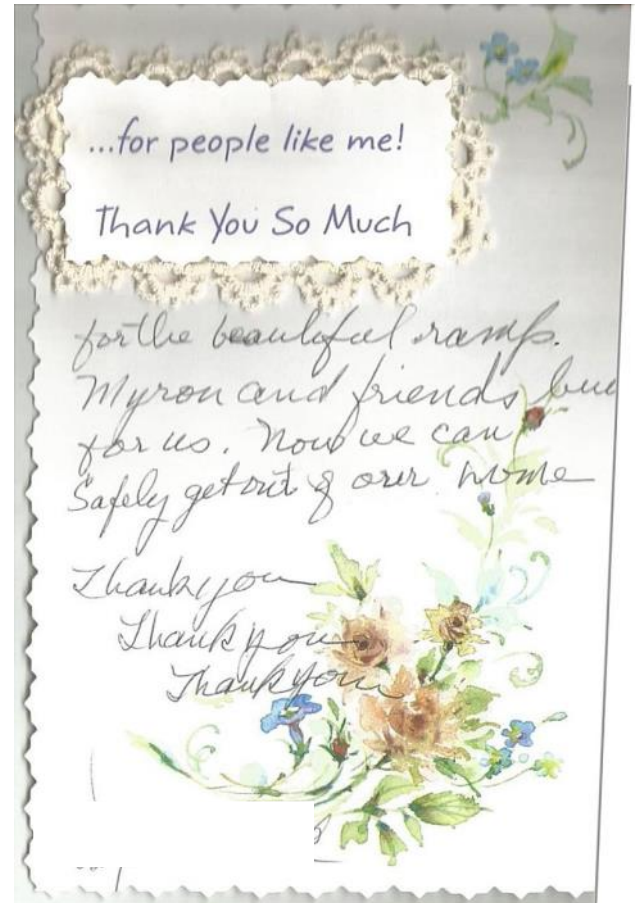 ...for people like me!
Thank You So Much
for the beautiful ramp.
Myron and friends
for us. Now we can
Safely get out of our home
Thank you
Thank you
Thank you